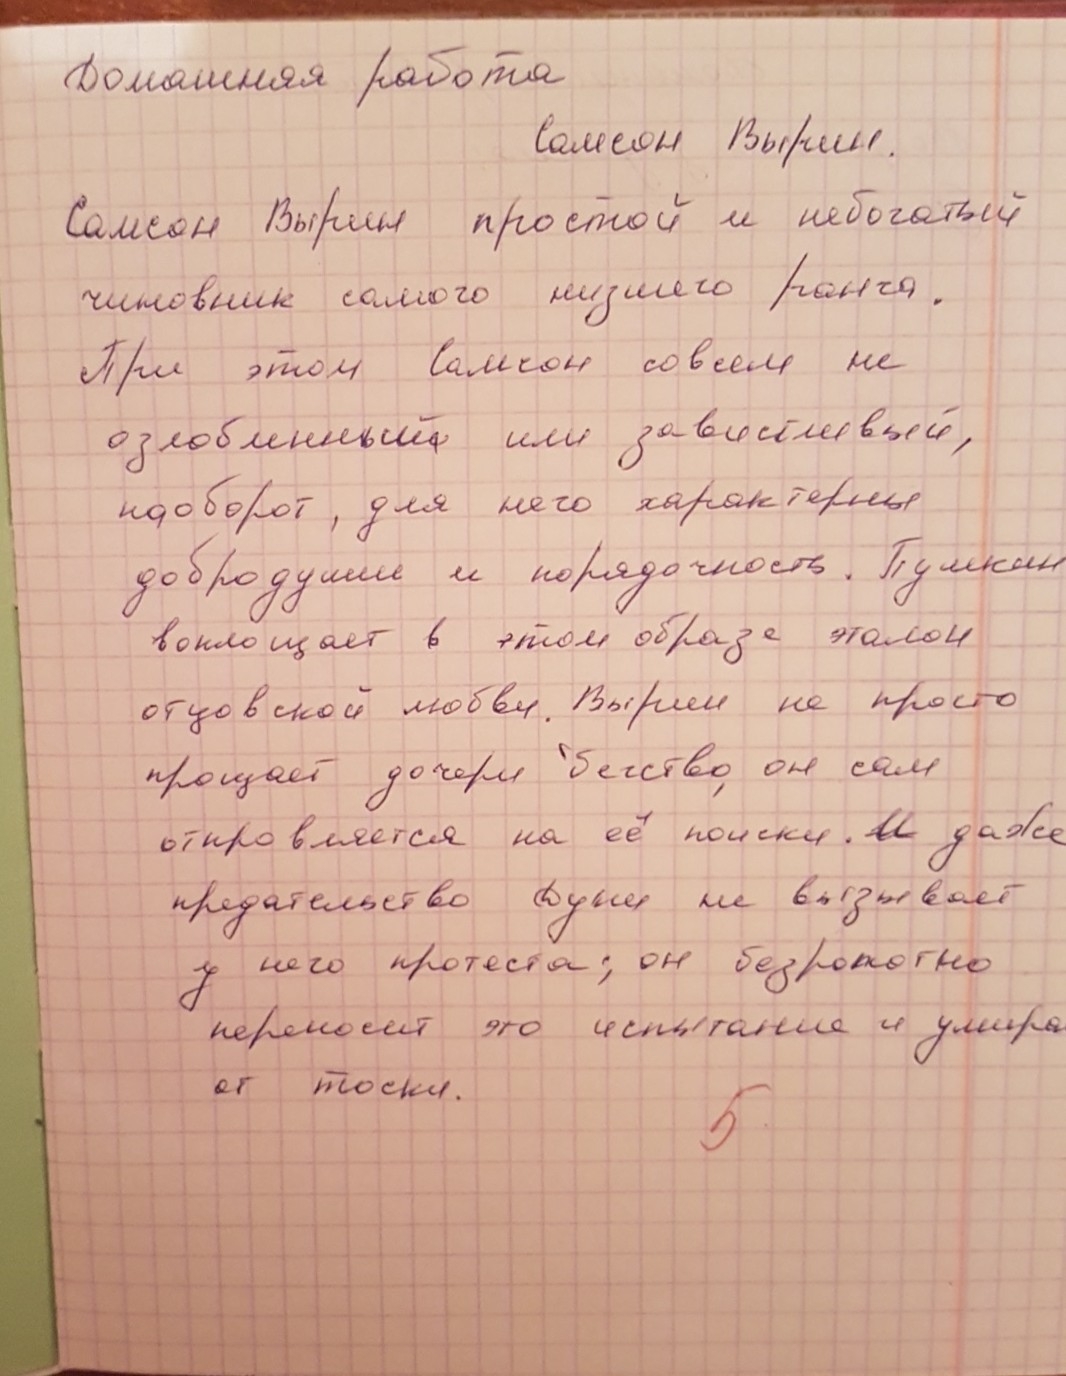 Домашняя работа
Самсон Вырин.
Самсон Вырин простой и небогатый
чиновник самого низшего ранга.
При этом Самсон совсем не
озлобленный или завистливый,
наоборот, для него характерны
добродушие и порядочность. Пушкин
воплощает в этом образе эталон
отцовской любви. Вырин не просто
прощает дочери бегство, он сам
отправляется на её поиски. И даже
предательство Дуни не вызывает
у него протеста; он безропотно
переносит это испытание и умира
от тоски.
5